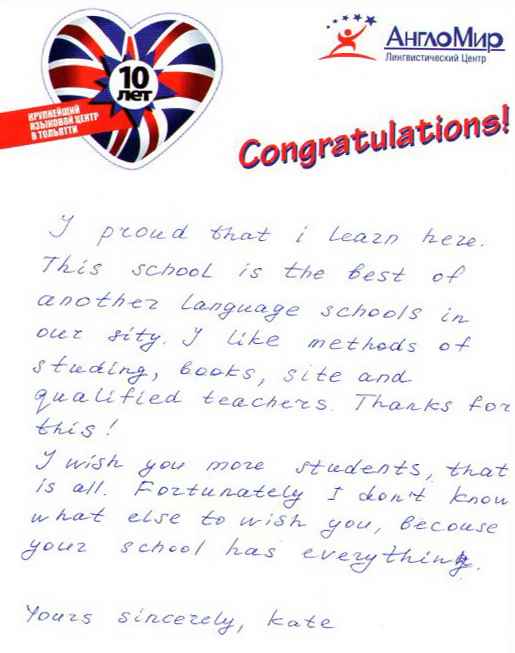 10
лет
КРУПНЕЙШИЙ
ЯЗЫКОВОЙ ЦЕНТР
В ТОЛЬЯТТИ
АнглоМир
Лингвистический Центр
Congratulations!
I proud that i learn here.
This school is the best of
another language schools in
our sity. I like methods of
studing, books, site and
qualified teachers. Thanks for
this!
I wish you more students, that
is all. Fortunately I don't know
what else to wish you, becouse
your school has everything.
Yours sincerely, Kate